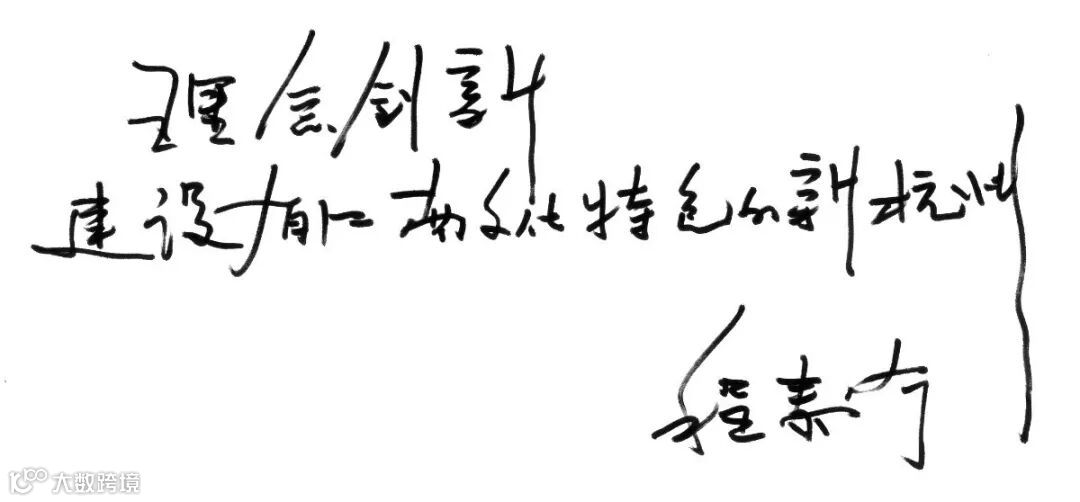 理念创新
建设有江南文化特色的新杭州
程泰宁
大数跨境